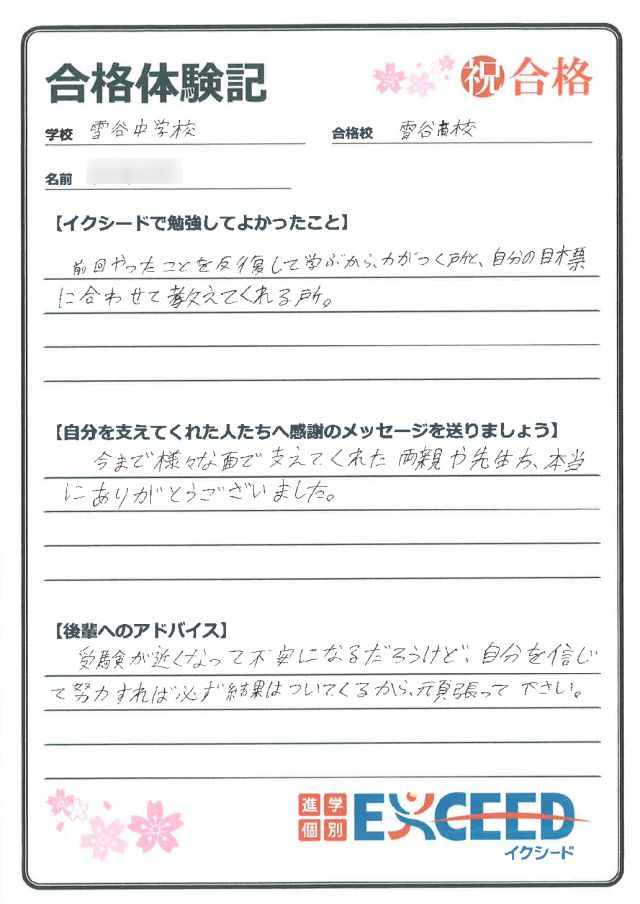 合格体験記
祝 合格
学校 雪谷中学校
合格校 雪谷高校
名前
【イクシードで勉強してよかったこと】
前回やったことを反復して学ぶから、力がつく所と、自分の目標
に合わせて教えてくれる所。
【自分を支えてくれた人たちへ感謝のメッセージを送りましょう】
今まで様々な面で支えてくれた両親や先生方、本当
にありがとうございました。
【後輩へのアドバイス】
受験が近くなって不安になるだろうけど、自分を信じ
て努力すれば必ず結果はついてくるから、頑張って下さい。
進学
個別
EXCEED
イクシード